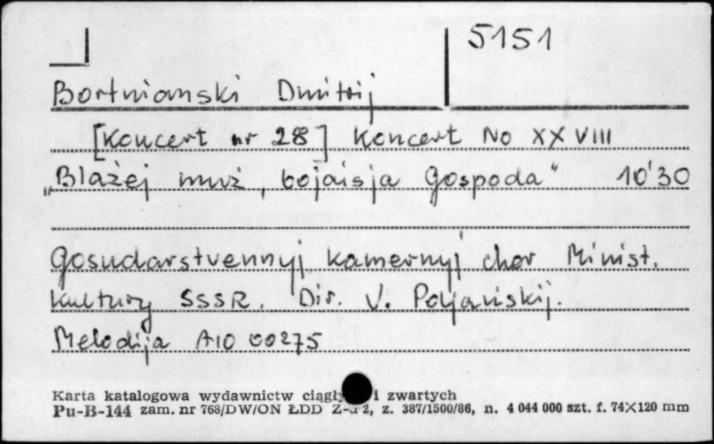 5151
Bortnianski Dmitrij
[Koncert nr 28] Koncert No XXVIII
„Blażej muż, bojaisja Gospoda" 10'30
Gosudarstvennyj kamernyj chor Minist.
Kultury SSSR. Dir. V. Poljańskij.
Melodija A10 00275
Karta katalogowa wydawnictw i zwartych
Pu-B-144 zam. nr 768/DW/ON ŁDD z. 387/1500/86, n. 4 044 000 szt. f. 74×120 mm